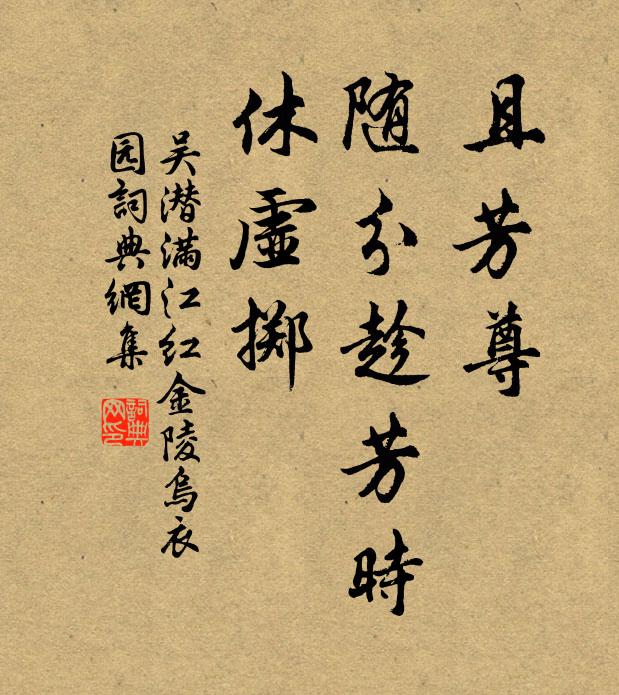 且芳尊
随分趁芳時
休虛擲
吴潜满江红金陵烏衣
园詞典網集
詞典
网印